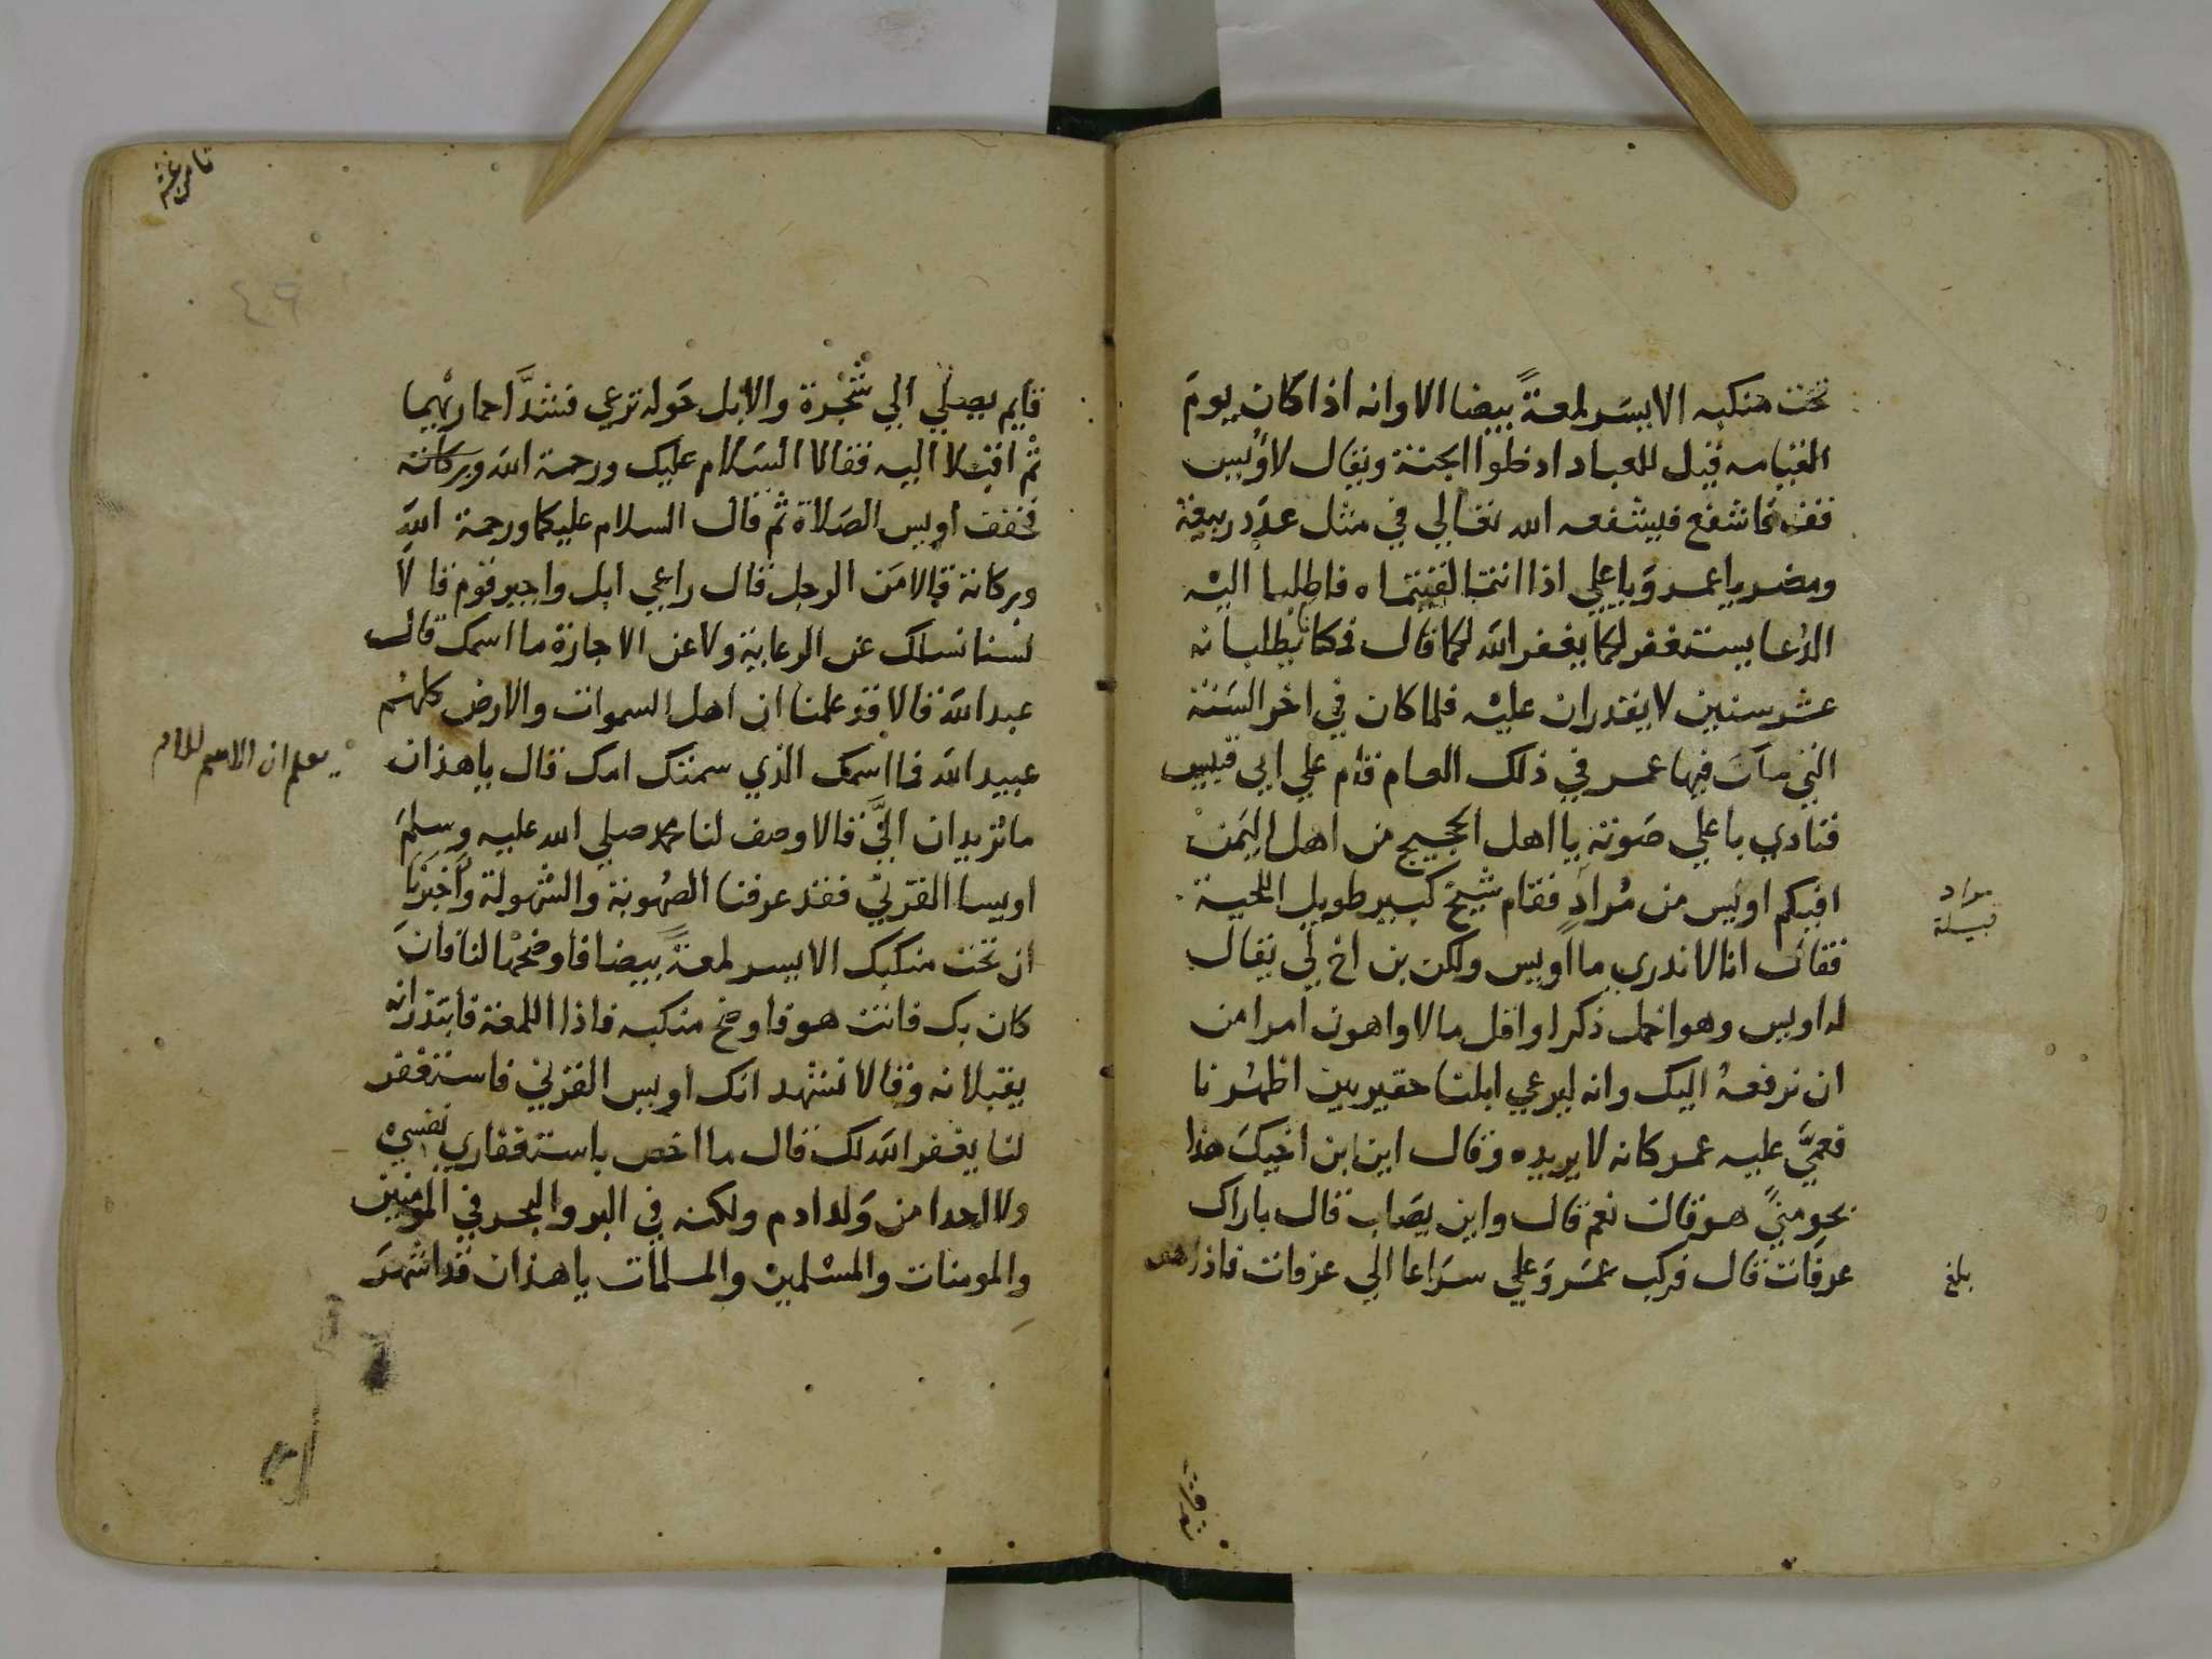 تحت منكبه الايسر لمعةً بيضا الا وانه اذا كان يوم
القيامه قيل للعباد ادخلوا الجنة ويقال لاويس
قف فاشفع فيشفعه الله تعالي في مثل عدد ربيعة
ومضر يا عمر ويا علي اذا انتما لقيتماه فاطلبا اليه
الدعا يستغفر لكما يغفر الله لكما قال فمكثا يطلبانه
عشر سنين لا يقدران عليه فلما كان في اخر السنة
التي مات فيها عمر في ذلك العام قام علي ابي قبيس
فنادي باعلي صوته يا اهل الحجيج من اهل اليمن
افيكم اويس من مُرادٍ فقام شيخ كبير طويل اللحية
فقال انا لا ندري ما اويس ولكن بن اخ لي يقال
له اويس وهو اخمل ذكرا واقل مالا واهون امرا من
ان نرفعهُ اليك وانه ليرعي ابلنا حقير بين اظهرنا
فعمَّي عليه عمر كانه لا يريده وقال اين ابن اخيك هذا
بحرمي هو قال نعم قال واين يصاب قال باراك
عرفات قال فركب عمر وعلي سراعا الي عرفات فاذا هو
مراد
قبيلة
بلغ
قايم يصلي الي شجرة والابل حوله ترعي فشدَّا حماريهما
ثم اقبلا اليه فقالا السلام عليك ورحمة الله وبركاته
فخفف اويس الصلاة ثم قال السلام عليكما ورحمة الله
وبركاته قالا من الرجل قال راعي ابل واجير قوم قالا
لسنا نسالك عن الرعاية ولا عن الاجارة ما اسمك قال
عبد الله قالا قد علمنا ان اهل السموات والارض كلهم
عبيد الله فما اسمك الذي سمتك امك قال يا هذان
ما تريدان اليَّ قالا وصف لنا محمد صلي الله عليه وسلم
اويسا القرني فقد عرفنا الصهوبة والشهولة واخبرنا
ان تحت منكبك الايسر لمعةً بيضا فاوضحها لنا فان
كان بك فانت هو فاوضح منكبه فاذا اللمعة فابتدرانه
يقبلانه وقالا نشهد انك اويس القرني فاستغفر
لنا يغفر الله لك قال ما اخص باستغفاري نفسي
ولا احدا من ولد ادم ولكنه في البر والبحر في المومنين
والمومنات والمسلمين والمسلمات يا هذان قد اشهر
٤٩